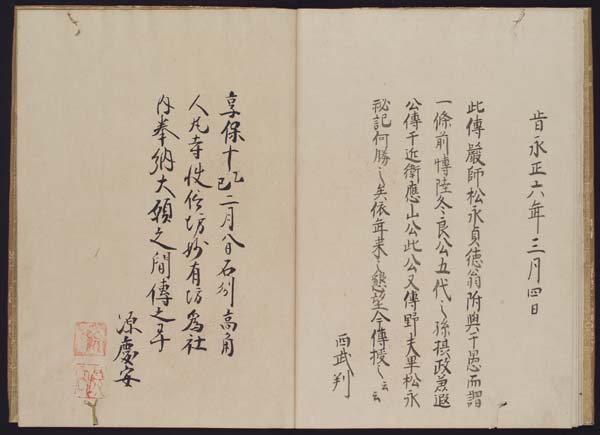 旹永正六年三月四日
此傳嚴師松永貞德翁附與于愚而謂
一條前博陸冬良公五代之孫摂政兼遐
公傳于近衛應山公此公又傳野夫畢松永
秘記何勝之矣依年来之懇望令傳授之云云
西武判
享保十乙巳二月八日石州高角
人丸寺住侶坊妙有坊為社
内奉納大願之間傳之予
源慶安